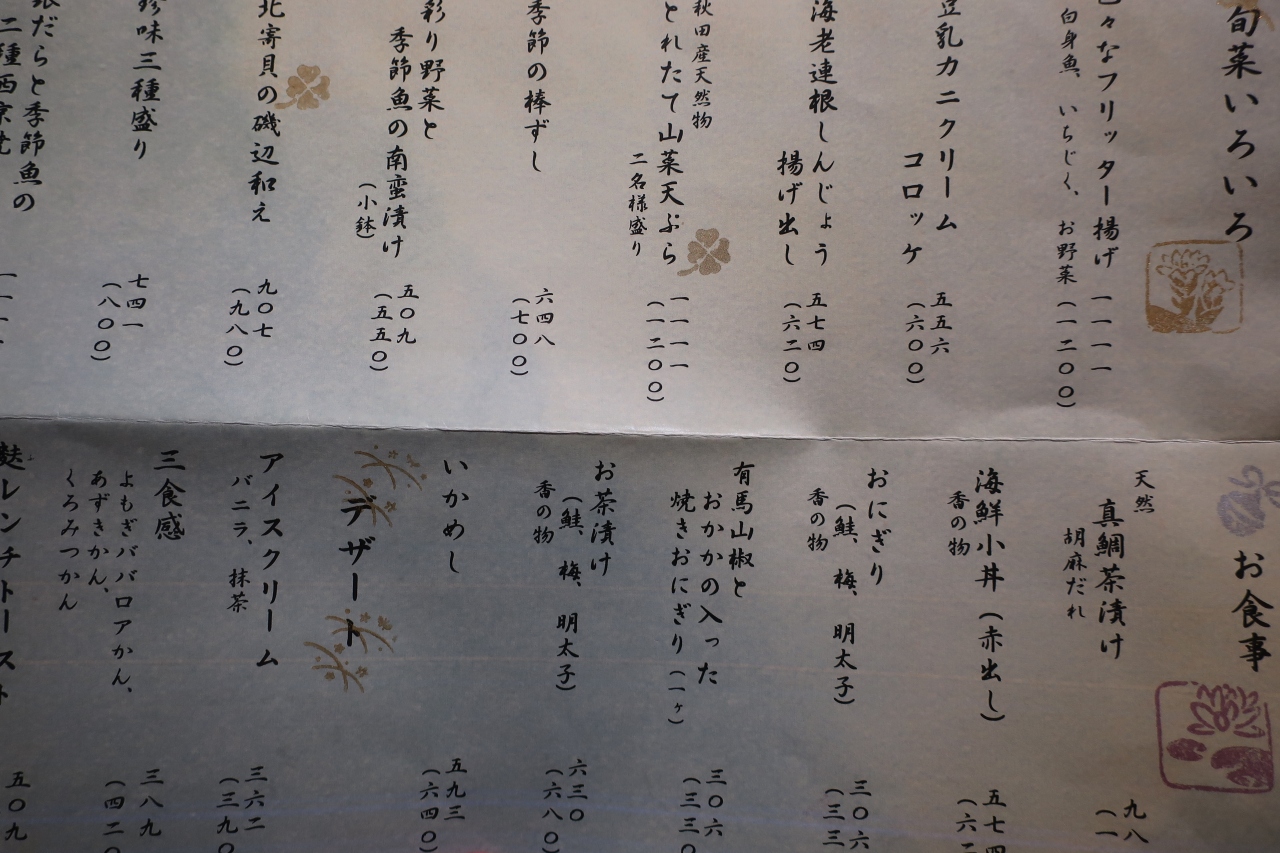 旬菜いろいろ
々なフリッター揚げ
白身魚、いちじく、お野菜
一一一一
(一二〇〇)
豆乳カニクリーム
コロッケ
五五六
(六〇〇)
海老連根しんじょう
揚げ出し
五七四
(六二〇)
秋田産天然物
とれたて山菜天ぷら
二名様盛り
一一一一
(一二〇〇)
季節の棒ずし
六四八
(七〇〇)
彩り野菜と
季節魚の南蛮漬け
(小鉢)
五〇九
(五五〇)
北寄貝の磯辺和え
九〇七
(九八〇)
珍味三種盛り
七四一
(八〇〇)
だらと季節魚の
二種西京
お食事
天然
真鯛茶漬け
胡麻だれ
九八
(一
海鮮小丼(赤出し)
香の物
五七四
(六二
おにぎり
(鮭、梅、明太子)
香の物
三〇六
(三三
有馬山椒と
おかかの入った
焼きおにぎり(一ヶ)
三〇六
(三三〇
お茶漬け
(鮭、梅、明太子)
香の物
六三〇
(六八〇)
いかめし
五九三
(六四〇)
デザート
アイスクリーム
バニラ、抹茶
三六二
(三九〇
三食感
よもぎババロアかん、
あずきかん、
くろみつかん
三八九
(四二〇
麩レンチトースト
五〇九